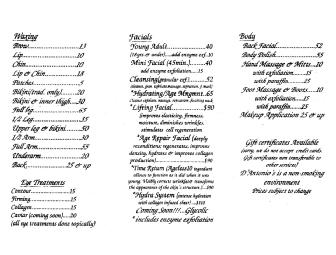 Waxing
Brow..................13
Lip....................10
Chin..................10
Lip & Chin............18
Patches...............
Bikini(trad. only).......20
Bikini & inner thigh...30
Full leg................65
1/2 Leg................35
Upper leg & bikini.......50
1/2 Arm................30
Full Arm...............35
Underarm..............20
Back..............25 & up
Eye Treatments
Contour..................15
Firming..................15
Collagen.................15
Caviar (coming soon)....20
(all eye treatments done topically)
Facials
Young Adult...............40
(16yrs & under)...add enzyme exf..10
Mini Facial (45min.).......40
add enzyme exfoliation.....15
Cleansing(granular exf).......52
*Hydrating/Age Mngmnt..65
*Lifting Facial............$90
Improves elasticity, firmness,
moisture, diminishes wrinkles,
stimulates cell regeneration
*Age Repair Facial (deeply
reconditions; regenerates, improves
elasticity, hydrates & improves collagen
production)...................$90
*Time Return (Ageless
young. Visibly corrects wrinkles& transforms
the appearance of the skin's structure.)...$90
*Hydra System (intense hydration
with collagen infused sheet)....$110
Coming Soon!!!...Glycolic
* includes enzyme exfoliation
Body
Back Facial...............52
Body Polish...............55
Hand Massage & Mitts...10
with exfoliation.......15
with paraffin..........15
Foot Massage & Boots....10
with exfoliation.......15
with paraffin..........15
Makeup Application 25 & up
Gift certificates Available
(sorry, we do not accept credit cards.
Gift certificates non transferable to
other services)
D'Antonio's is a non-smoking
environment
Prices subject to change